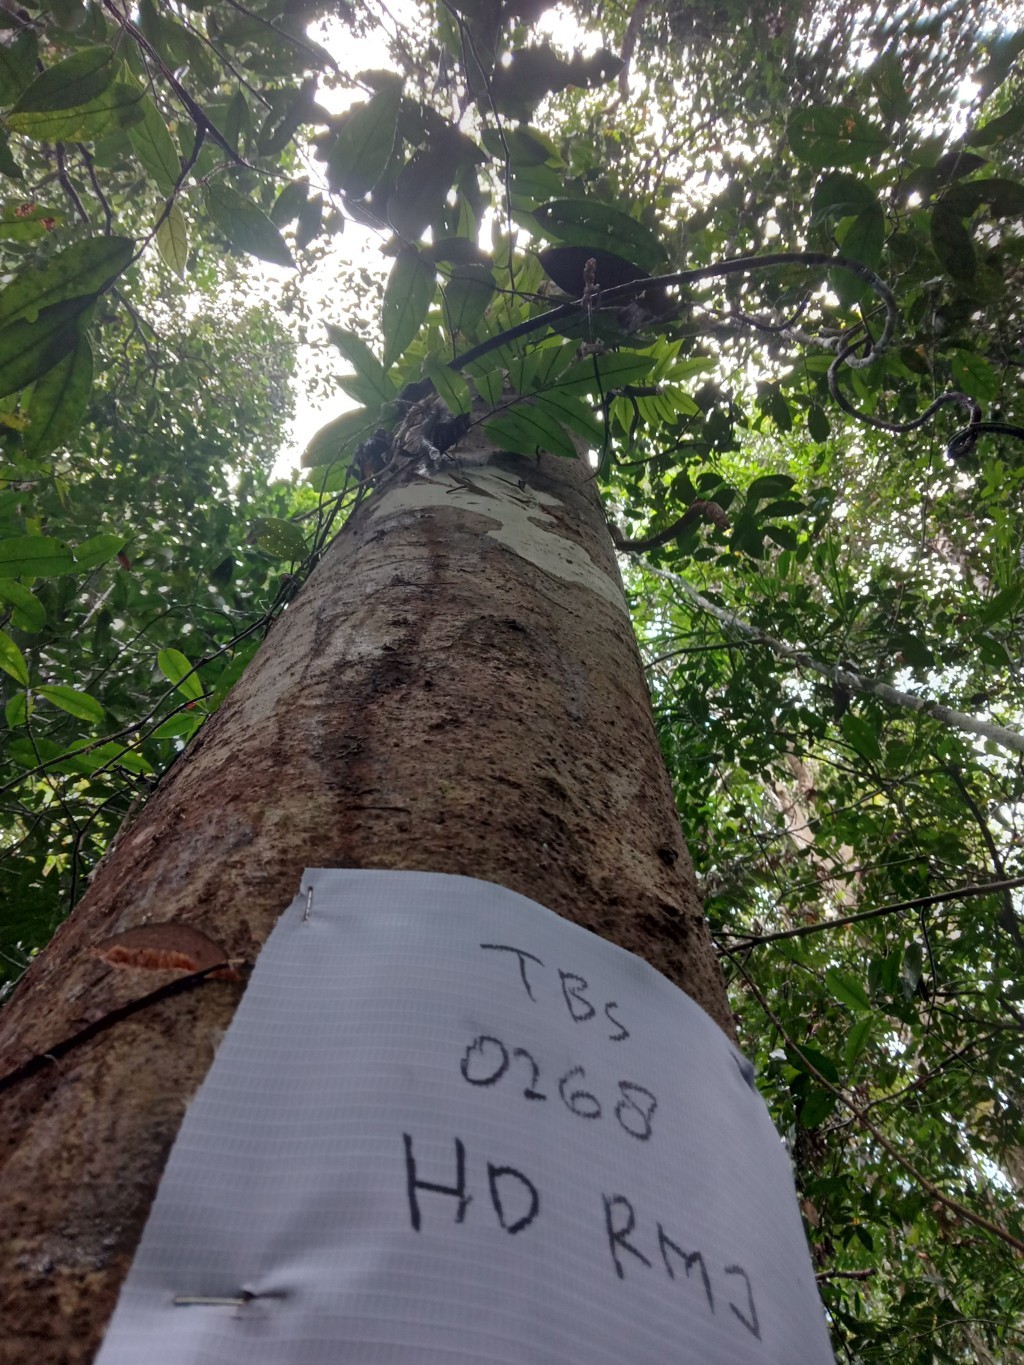 TBS
0268
HD RMJ